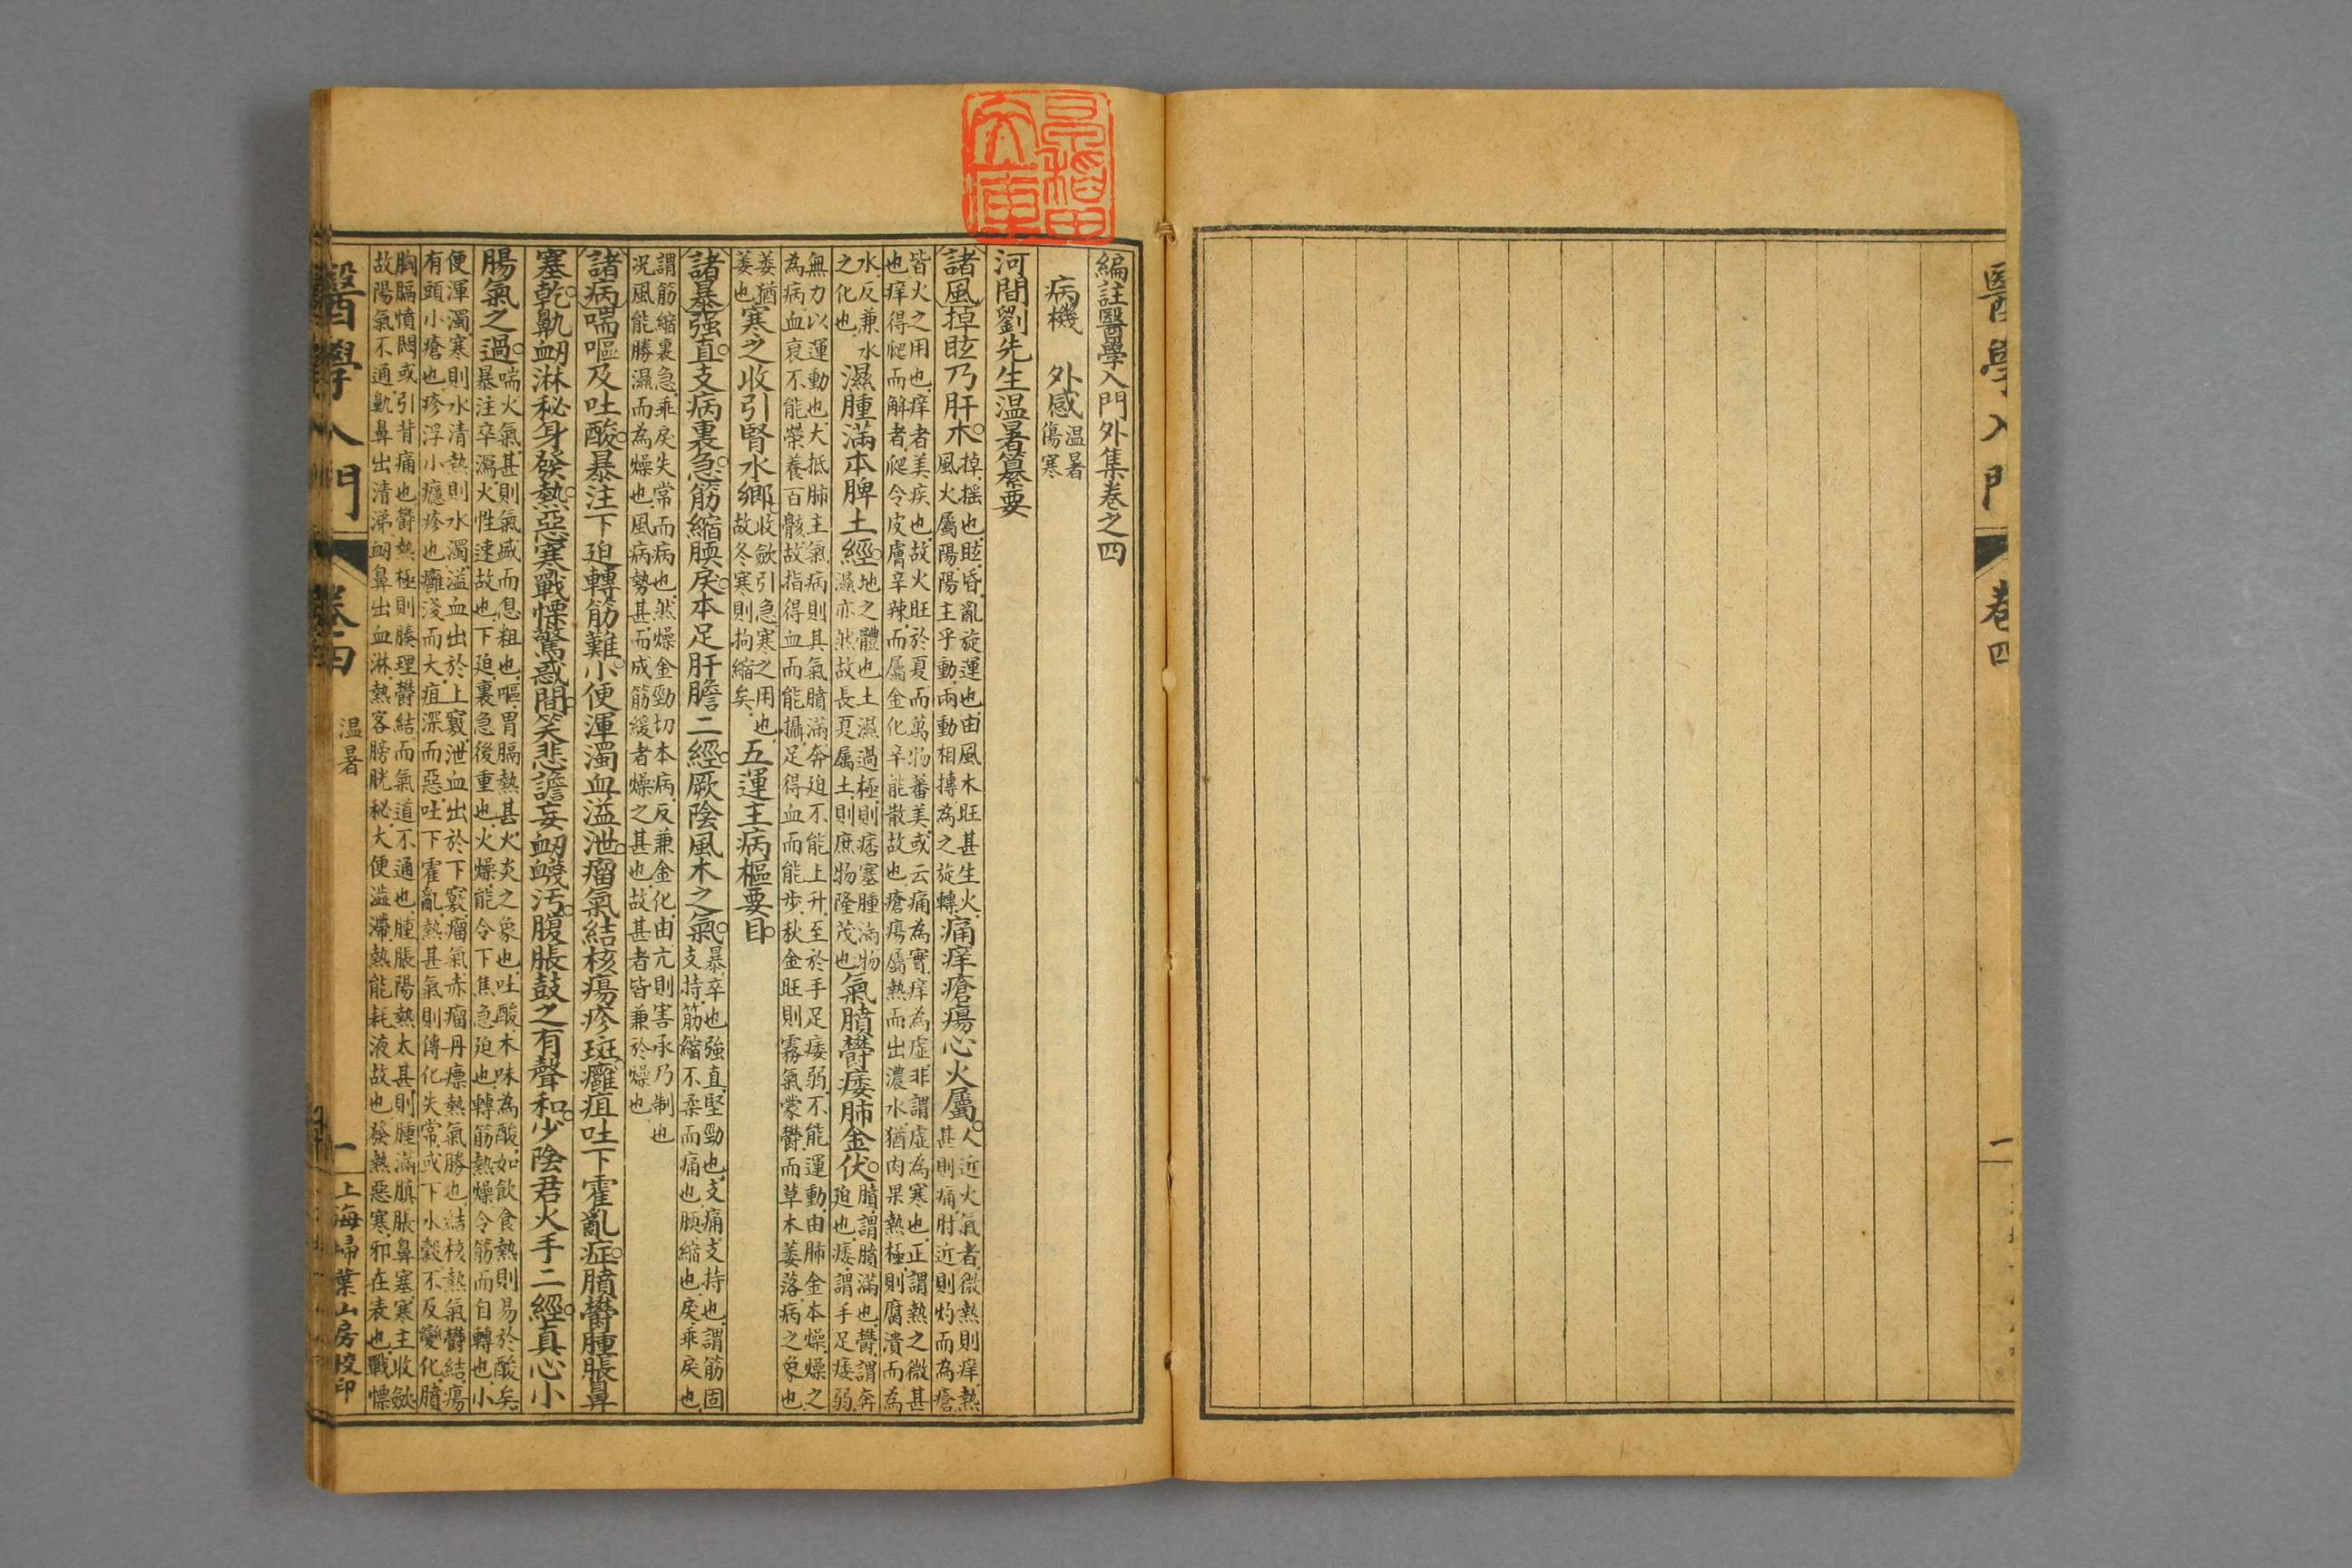 醫學入門 卷四 一
早稻田
文庫
編註醫學入門外集卷之四
病機 外感 温暑
傷寒
河間劉先生温暑纂要
諸風掉眩乃肝木
掉搖也眩昏亂旋運也由風木旺甚生火
風火屬陽陽主乎動兩動相摶為之旋轉
痛痒瘡瘍心火屬
人近火氣者微熱則痒熱
甚則痛附近則灼而為瘡
皆火之用也痒者美疾也故火旺於夏而萬物蕃美或云痛為實痒為虛非謂虛為寒也正謂熱之微甚
也痒得爬而解者爬令皮膚辛辣而屬金化辛能散故也瘡瘍屬熱而出濃水猶肉果熱極則腐潰而為
水反兼水
之化也
濕腫滿本脾土經
地之體也土濕過極則痞塞腫滿物
濕亦然故長夏屬土則庶物隆茂也
氣膹鬱痿肺金伏
膹謂膹滿也鬱謂奔
迫也痿謂手足痿弱
無力以運動也大抵肺主氣病則其氣膹滿奔迫不能上升至於手足痿弱不能運動由肺金本燥燥之
為病血衰不能榮養百骸故指得血而能攝足得血而能步秋金旺則霧氣蒙鬱而草木萎落病之象也
萎猶
萎也
寒之收引腎水鄉
收歛引急寒之用也
故冬寒則拘縮矣
五運主病樞要目
諸暴强直支病裏急筋縮䎡戾本足肝膽二經厥陰風木之氣
暴卒也強直堅勁也支痛支持也謂筋固
支持筋縮不柔而痛也䎡縮也戾乖戾也
謂筋縮裏急乖戾失常而病也然燥金勁切本病反兼金化由亢則害承乃制也
况風能勝濕而為燥也風病勢甚而成筋緩者燥之甚也故甚者皆兼於燥也
諸病喘嘔及吐酸暴注下迫轉筋難小便渾濁血溢泄瘤氣結核瘍疹斑癰疽吐下霍亂症膹鬱腫脹鼻
塞乾鼽衂淋秘身發熱惡寒戰慄驚惑間笑悲譫妄衂衊汚腹脹鼓之有聲和少陰君火手二經真心小
腸氣之過
喘火氣甚則氣盛而息粗也嘔胃膈熱甚火炎之象也吐酸木味為酸如飲食熱則易於酸矣
暴注卒瀉火性速故也下迫裏急後重也火燥能令下焦急迫也轉筋熱燥令筋而自轉也小
便渾濁寒則水清熱則水濁溢血出於上竅泄血出於下竅瘤氣赤瘤丹熛熱氣勝也結核熱氣鬱結瘍
有頭小瘡也疹浮小癮疹也癰淺而大疽深而惡吐下霍亂熱甚氣則傳化失常或下水穀不反變化膹
胸膈憤悶或引背痛也鬱熱極則腠理鬱結而氣道不通也腫脹陽熱太甚則腫滿䐜脹鼻塞寒主收歛
故陽氣不通鼽鼻出清涕衂鼻出血淋熱客膀胱秘大便澁滯熱能耗液故也發熱惡寒邪在表也戰慄
醫學入門 卷四 温暑 一 上海埽葉山房校印